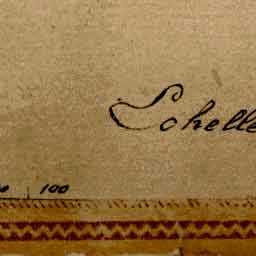 Schelle
100